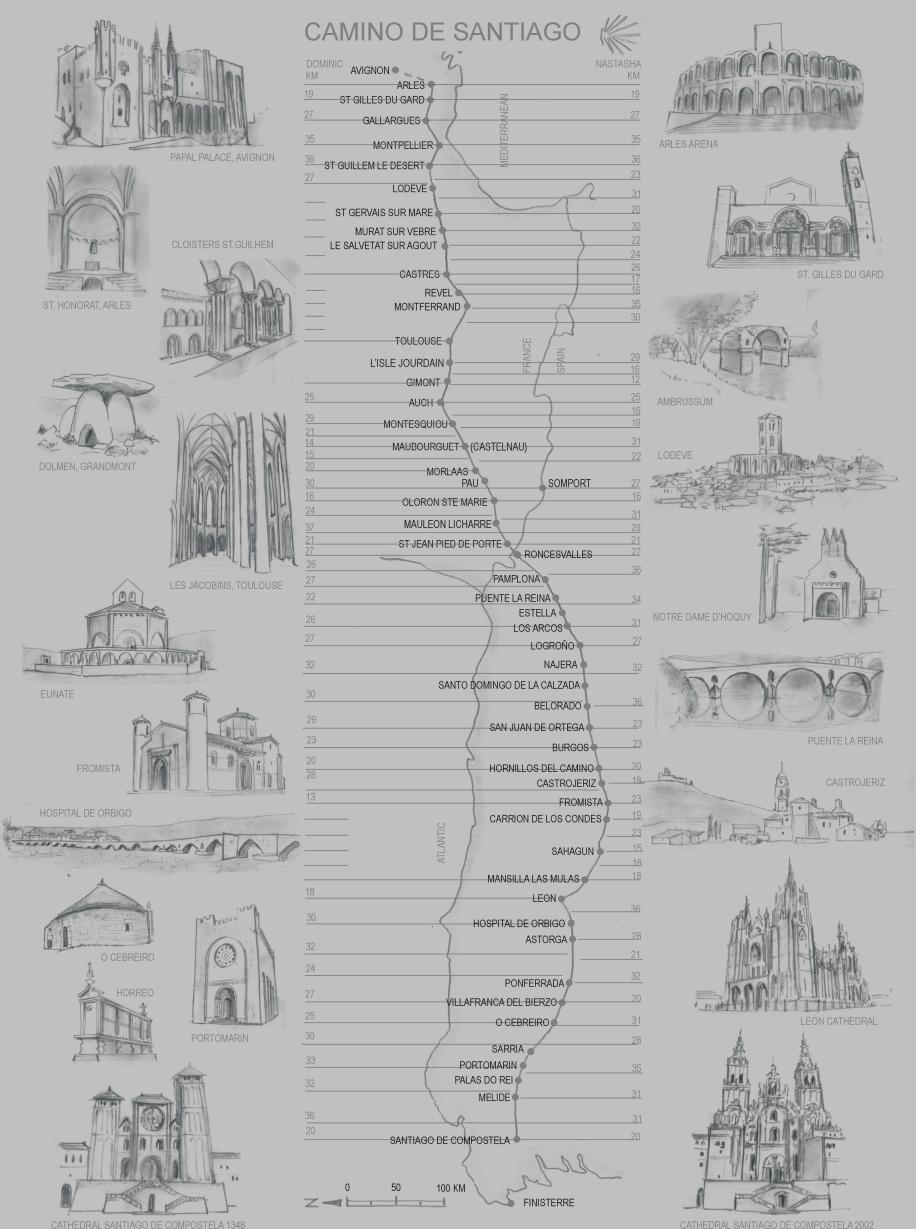 CAMINO DE SANTIAGO
DOMINIC
KM
NASTASHA
KM
AVIGNON
ARLES
19 ST GILLES DU GARD 19
27 GALLARGUES 27
35 MONTPELLIER 35
36 ST GUILLEM LE DESERT 36
27
23
LODEVE
31
ST GERVAIS SUR MARE 20
MURAT SUR VEBRE 32
LE SALVETAT SUR AGOUT 22
24
CASTRES 26
17
REVEL 16
MONTFERRAND 35
30
TOULOUSE
L'ISLE JOURDAIN 29
16
GIMONT 12
25 AUCH 25
16
29 MONTESQUIOU 19
21
14 MAUBOURGUET (CASTELNAU) 31
15
22
20 MORLAAS
30 PAU SOMPORT 27
16 OLORON STE MARIE 16
24
31
37 MAULEON LICHARRE 29
21 ST JEAN PIED DE PORTE 21
27 RONCESVALLES 27
26
36
27 PAMPLONA
22 PUENTE LA REINA 34
ESTELLA
26 LOS ARCOS 31
27 LOGROÑO 27
32 NAJERA 32
SANTO DOMINGO DE LA CALZADA
30 BELORADO 36
29 SAN JUAN DE ORTEGA 23
23 BURGOS 23
20 HORNILLOS DEL CAMINO 20
28 CASTROJERIZ 18
13 FROMISTA 23
CARRION DE LOS CONDES 19
23
SAHAGUN 15
18
MANSILLA LAS MULAS 18
18 LEON
36
30 HOSPITAL DE ORBIGO
ASTORGA 28
32
21
24 PONFERRADA 32
27 VILLAFRANCA DEL BIERZO 20
25 O CEBREIRO 31
30
28
SARRIA
33 PORTOMARIN
35
32 PALAS DO REI
MELIDE 31
36
31
20 SANTIAGO DE COMPOSTELA 20
FINISTERRE
MEDITERRANEAN
FRANCE
SPAIN
ATLANTIC
N
0 50 100 KM
PAPAL PALACE, AVIGNON
ST. HONORAT, ARLES
CLOISTERS ST.GUILHEM
DOLMEN, GRANDMONT
LES JACOBINS, TOULOUSE
EUNATE
FROMISTA
HOSPITAL DE ORBIGO
O CEBREIRO
HORREO
PORTOMARIN
CATHEDRAL SANTIAGO DE COMPOSTELA 1348
ARLES ARENA
ST. GILLES DU GARD
AMBRUSSUM
LODEVE
NOTRE DAME D'HOQUY
PUENTE LA REINA
CASTROJERIZ
LEON CATHEDRAL
CATHEDRAL SANTIAGO DE COMPOSTELA 2002